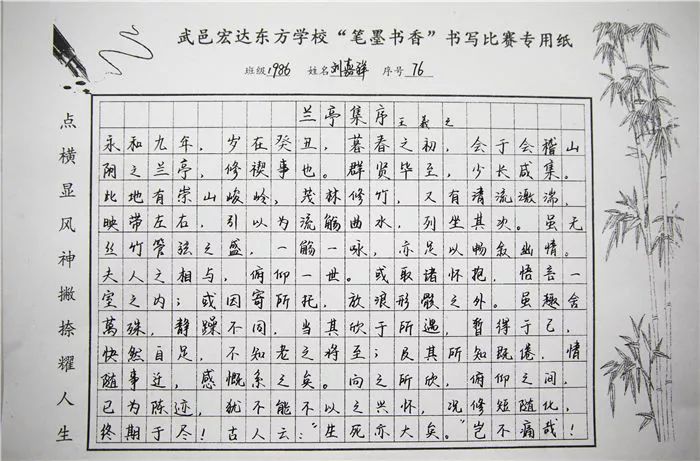 武邑宏达东方学校“笔墨书香”书写比赛专用纸
班级1986 姓名刘嘉祥 序号76
点横显风神撇捺耀人生
兰亭集序 王羲之
永和九年，岁在癸丑，暮春之初，会于会稽山
阴之兰亭，修禊事也。群贤毕至，少长咸集。
此地有崇山峻岭，茂林修竹，又有清流激湍，
映带左右，引以为流觞曲水，列坐其次。虽无
丝竹管弦之盛，一觞一咏，亦足以畅叙幽情。
夫人之相与，俯仰一世。或取诸怀抱，悟言一
室之内；或因寄所托，放浪形骸之外。虽趣舍
万殊，静躁不同，当其欣于所遇，暂得于己，
快然自足，不知老之将至；及其所知既倦，情
随事迁，感慨系之矣。向之所欣，俯仰之间，
已为陈迹，犹不能不以之兴怀，况修短随化，
终期于尽！古人云：“生死亦大矣。”岂不痛哉！